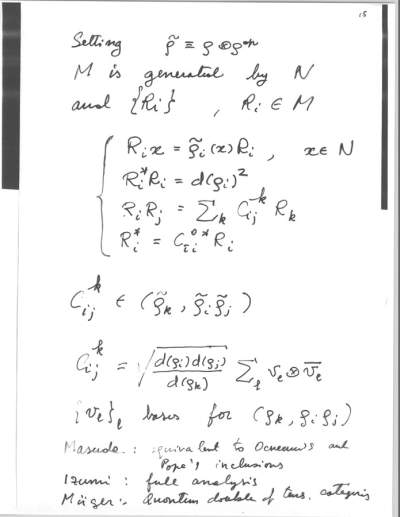 15
Setting ρ̃ ≡ ρ⊗ρᵒᵖ
M is generated by N
and {Ri} , Ri ∈ M
Ri x = ρ̃i(x) Ri , x ∈ N
Ri* Ri = d(ρi)²
Ri Rj = Σk Cij^k Rk
Ri* = Cīi^0* Rī
Cij^k ∈ (ρ̃k, ρ̃i ρ̃j)
Cij^k = √(d(ρi)d(ρj)/d(ρk)) Σℓ vℓ ⊗ v̄ℓ
{vℓ}ℓ bases for (ρk, ρiρj)
Masuda : equivalent to Ocneanu's and
Popa's inclusions
Izumi : full analysis
Müger : Quantum double of tens. categories